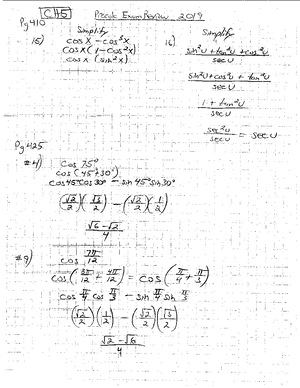 Ch 5 Precalc Exam Review 2019
Pg 410
15) Simplify
cos x - cos³x
cos x (1 - cos²x)
cos x (sin²x)
16) Simplify
sin²u + tan²u + cos²u / sec u
sin²u + cos²u + tan²u / sec u
1 + tan²u / sec u
sec²u / sec u = sec u
Pg 425
#4) cos 75°
cos (45° + 30°)
cos 45° cos 30° - sin 45° sin 30°
(√2/2)(√3/2) - (√2/2)(1/2)
√6 - √2 / 4
#9) cos 7π/12
cos (3π/12 + 4π/12) = cos (π/4 + π/3)
cos π/4 cos π/3 - sin π/4 sin π/3
(√2/2)(1/2) - (√2/2)(√3/2)
√2 - √6 / 4